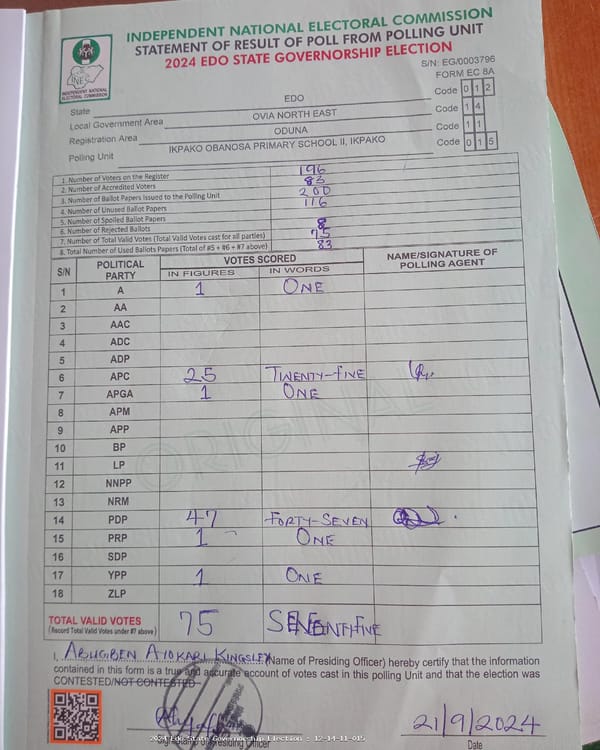 INDEPENDENT NATIONAL ELECTORAL COMMISSION
STATEMENT OF RESULT OF POLL FROM POLLING UNIT
2024 EDO STATE GOVERNORSHIP ELECTION
INEC
INDEPENDENT NATIONAL ELECTORAL COMMISSION
S/N: EG/0003796
FORM EC 8A
State EDO Code 0 1 2
Local Government Area OVIA NORTH EAST Code 1 4
Registration Area ODUNA Code 1 1
Polling Unit IKPAKO OBANOSA PRIMARY SCHOOL II, IKPAKO Code 0 1 5
1. Number of Voters on the Register 196
2. Number of Accredited Voters 83
3. Number of Ballot Papers Issued to the Polling Unit 200
4. Number of Unused Ballot Papers 116
5. Number of Spoiled Ballot Papers
6. Number of Rejected Ballots 8
7. Number of Total Valid Votes (Total Valid Votes cast for all parties) 75
8. Total Number of Used Ballots Papers (Total of #5 + #6 + #7 above) 83
S/N POLITICAL PARTY VOTES SCORED NAME/SIGNATURE OF POLLING AGENT
IN FIGURES IN WORDS
1 A 1 ONE
2 AA
3 AAC
4 ADC
5 ADP
6 APC 25 TWENTY-FIVE
7 APGA 1 ONE
8 APM
9 APP
10 BP
11 LP
12 NNPP
13 NRM
14 PDP 47 FORTY-SEVEN
15 PRP 1 ONE
16 SDP
17 YPP 1 ONE
18 ZLP
ORIGINAL
TOTAL VALID VOTES 75
(Record Total Valid Votes under #7 above)
I, KINGSLEY (Name of Presiding Officer) hereby certify that the information
contained in this form is a true and accurate account of votes cast in this polling Unit and that the election was
CONTESTED/NOT CONTESTED
21/9/2024
2024 Edo State Governorship Election : 12-14-11-015
Date